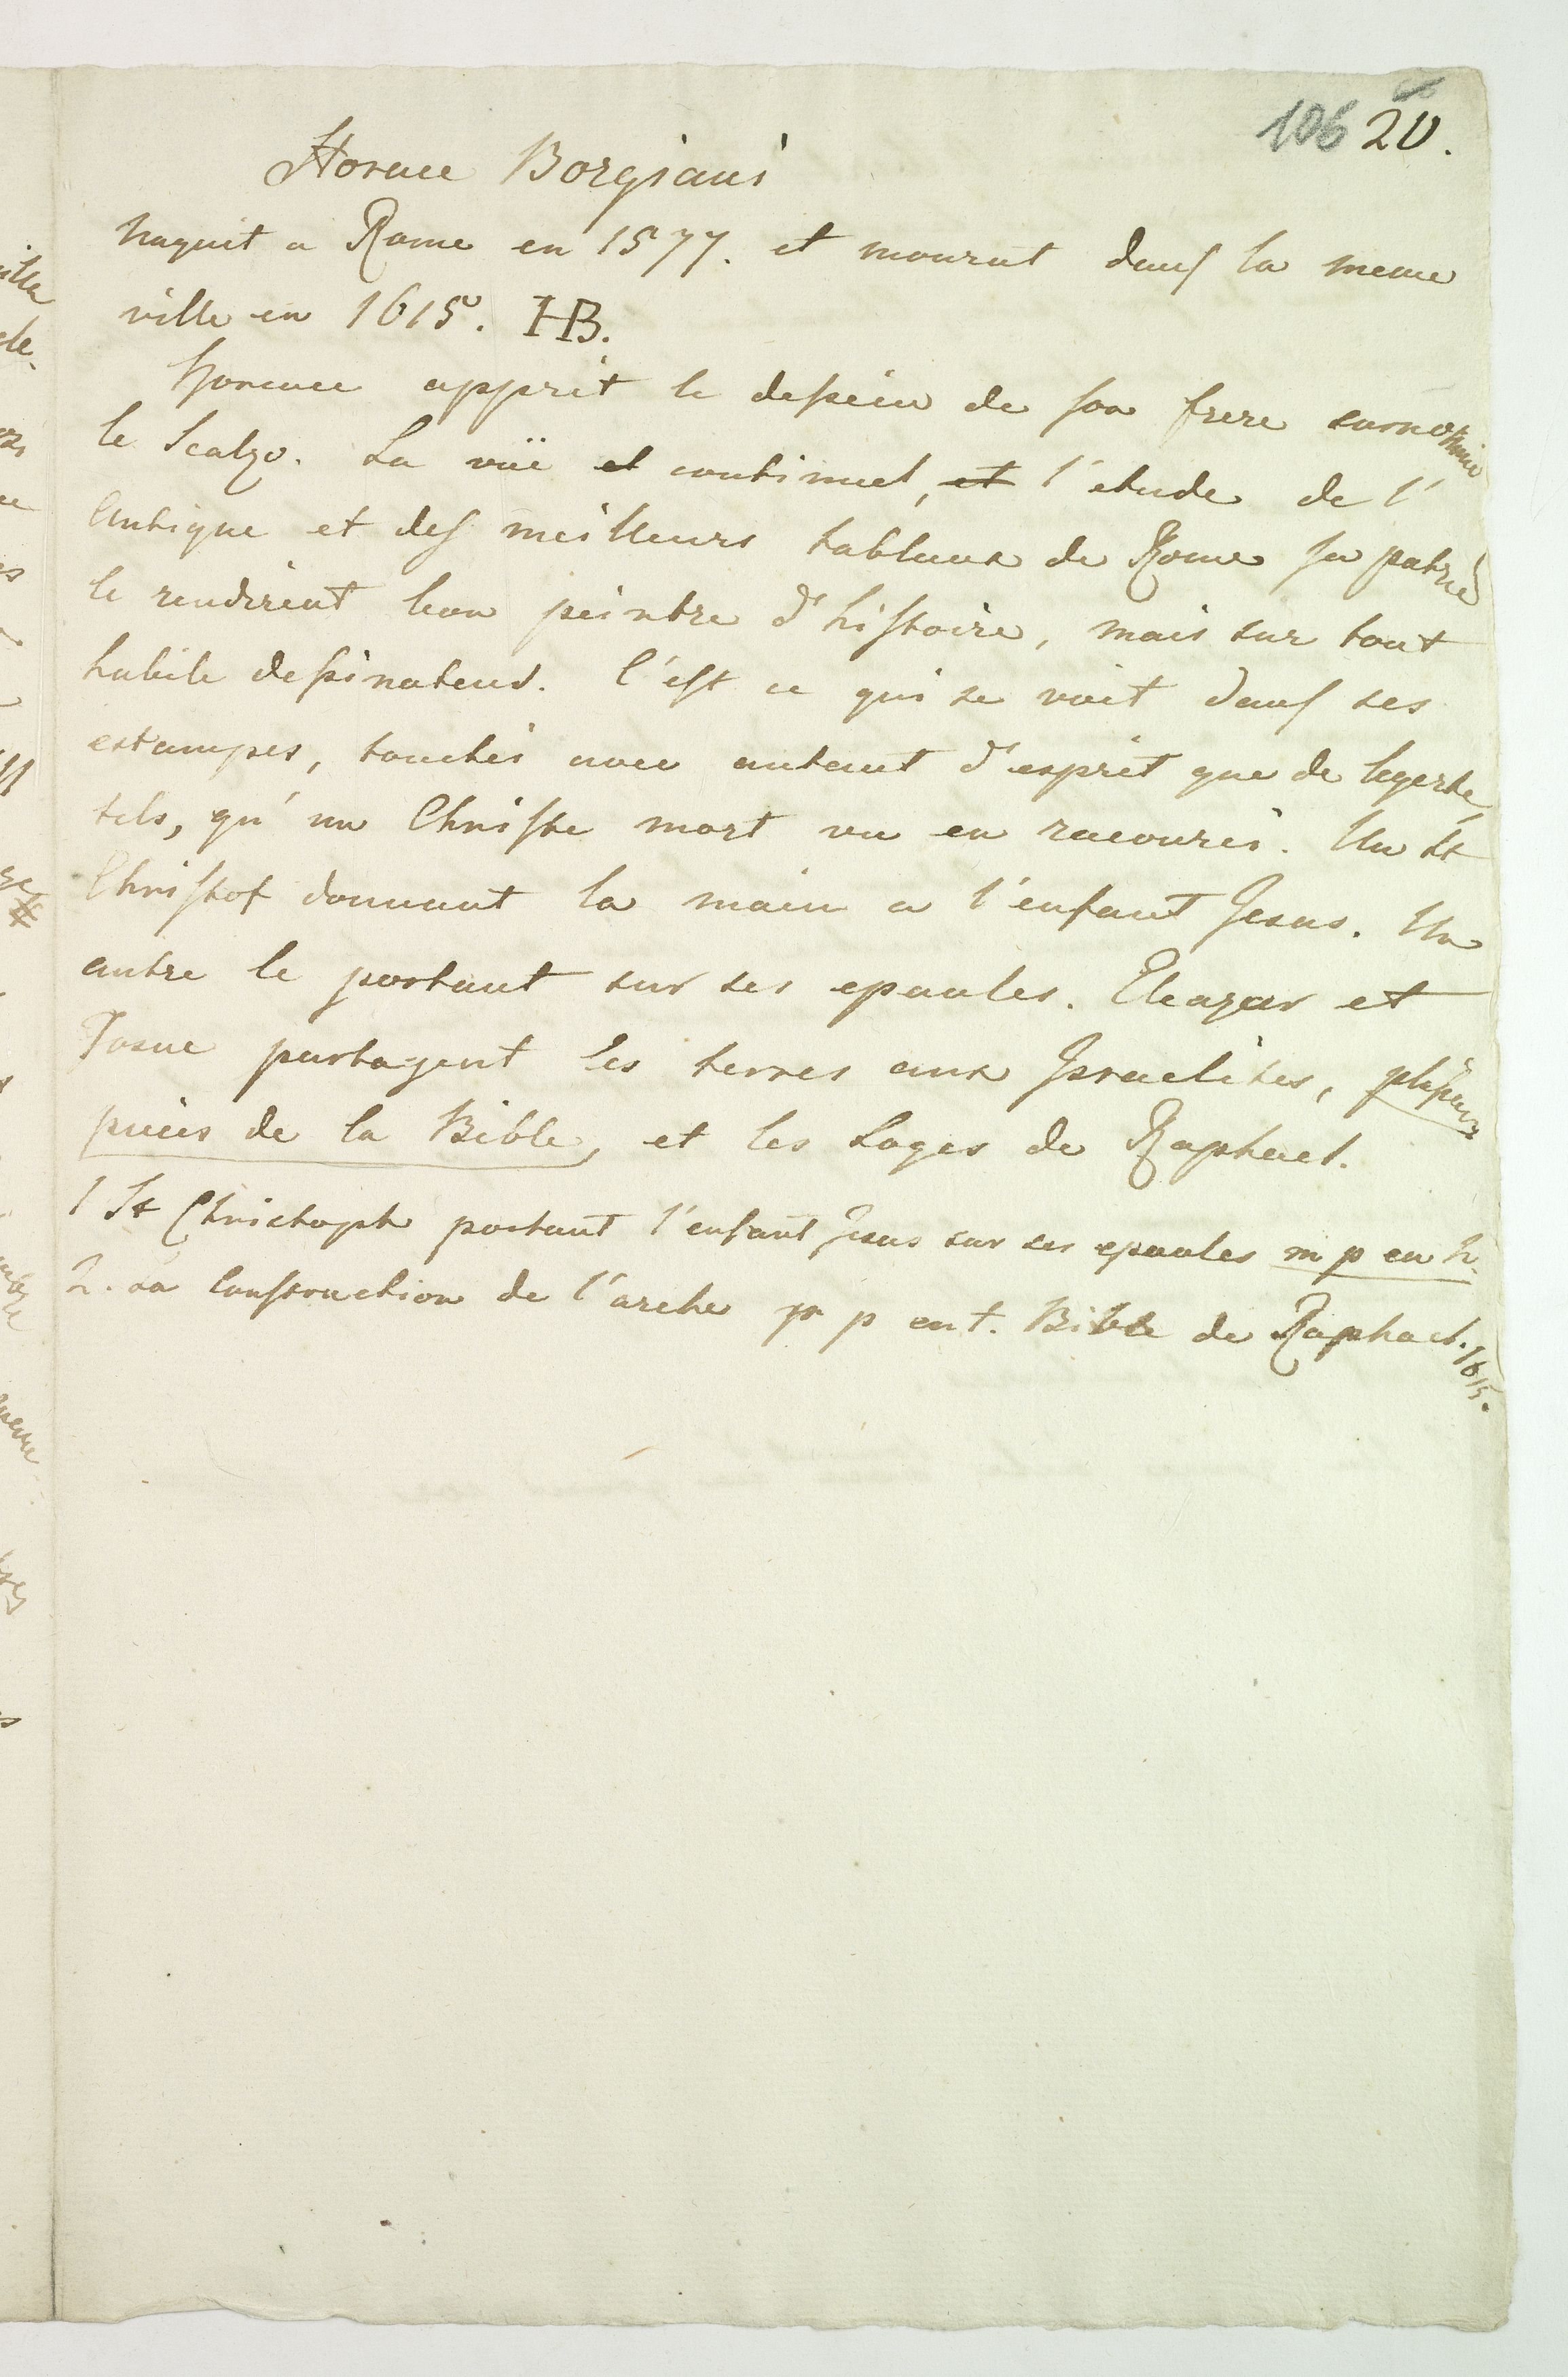 106 20.
Horace Borgiani
naquit a Rome en 1577. et mourut dans la meme
ville en 1615. HB.
Horence apprit le dessein de son frere surnommé
le Scalzo. La vüe et continuel, et l'etude de l'
Antique et des meilleurs tableaux de Rome sa patrie
le rendirent bon peintre d'histoire, mais sur tout
habile dessinateur. C'est ce qui se voit dans ses
estampes, touchés avec autant d'esprit que de legerté,
tels, qu'un Christe mort vu en racourci. Un St
Christof donnant la main a l'enfant Jesus. Un
autre le portant sur ses epaules. Eleazar et
Josue partagent les terres aux Israelites, plusieurs
pieces de la Bible, et les Loges de Raphael.
1 St Christoph portant l'enfant Jesus sur ses epaules m p en h.
2. La Construction de l'arche p p en t. Bible de Raphael. 1615.